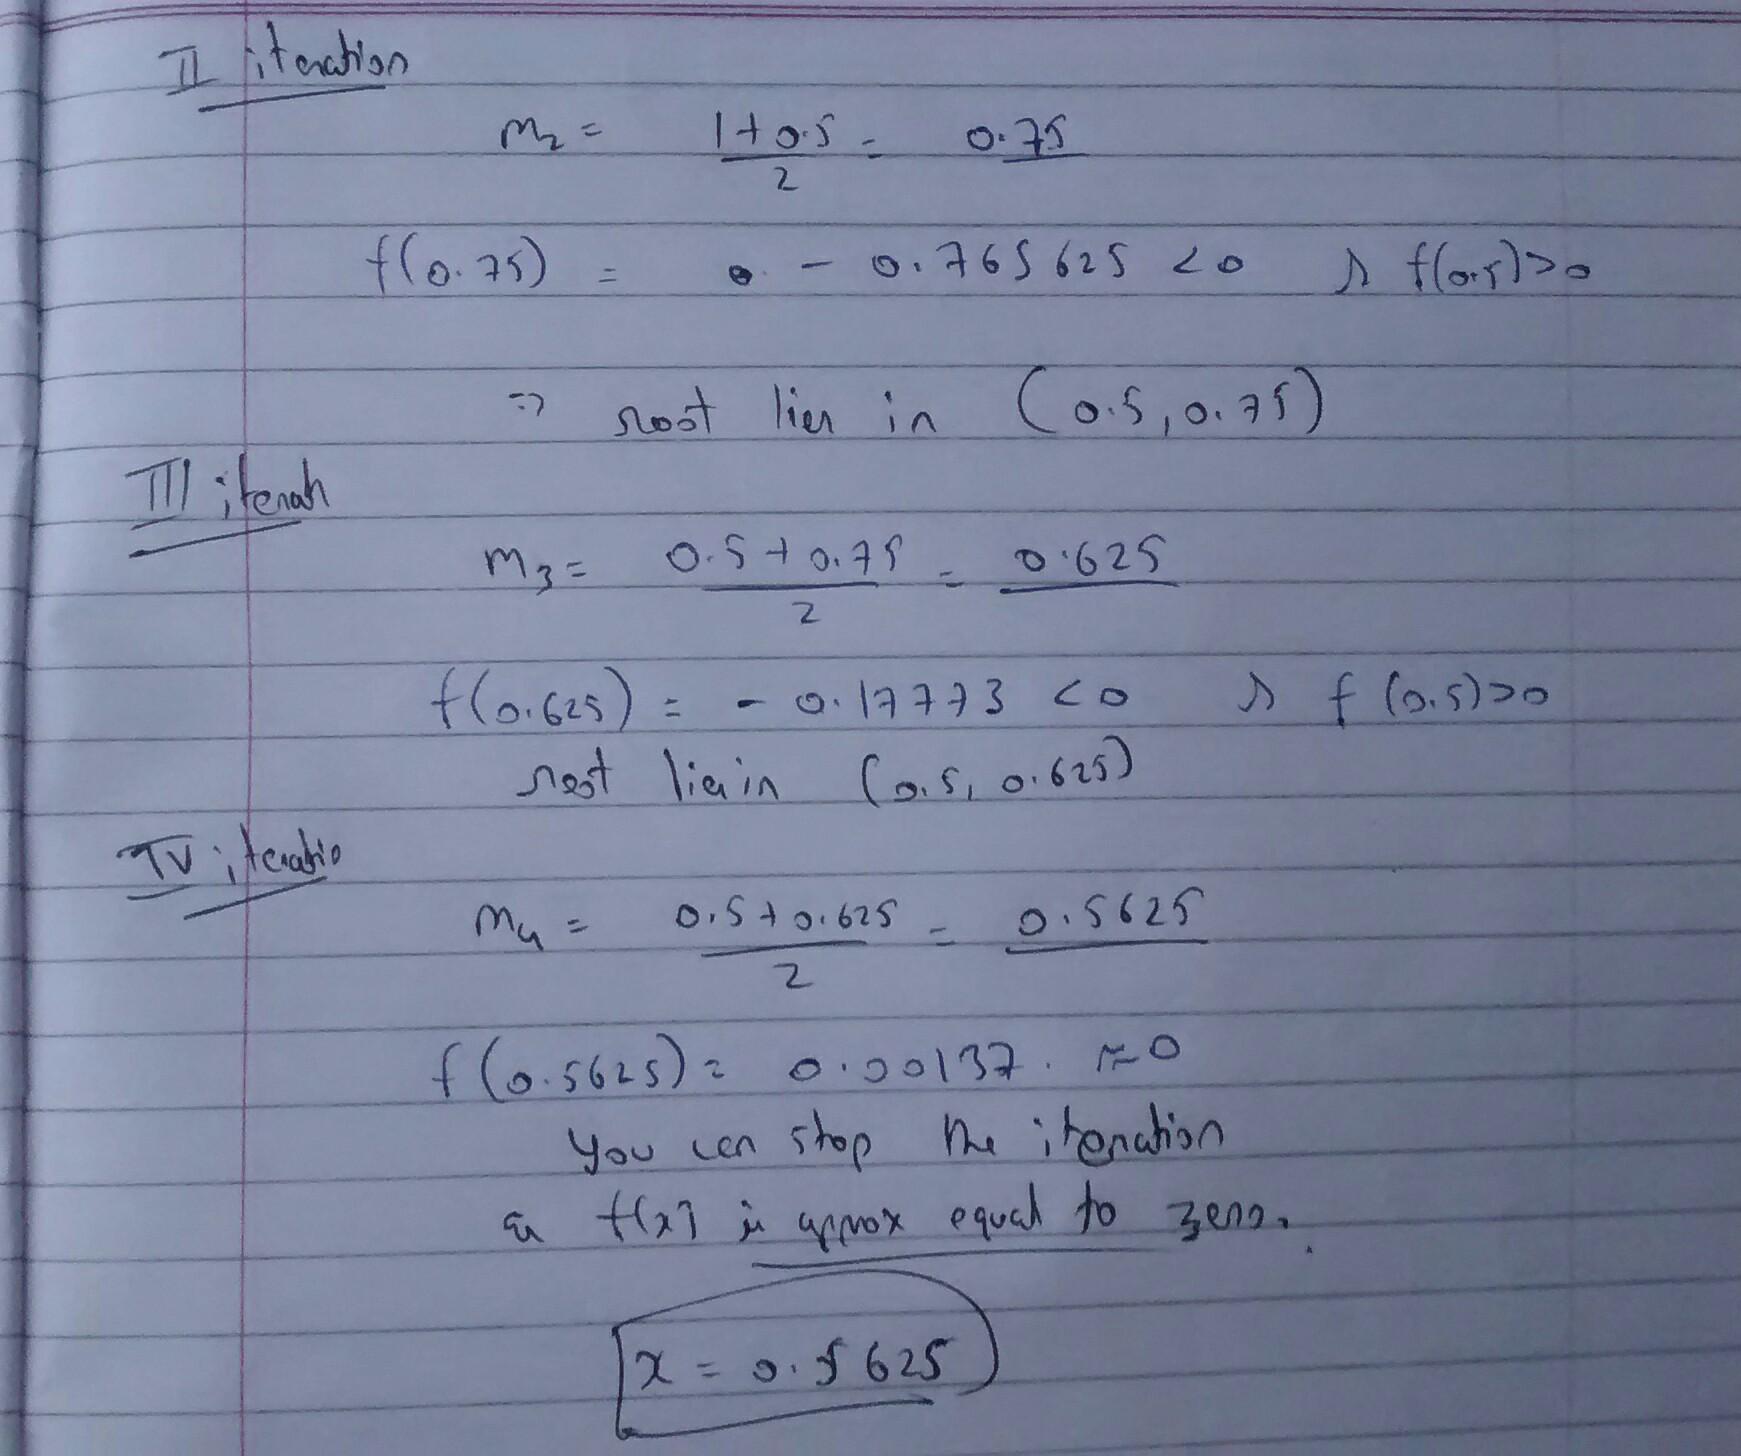 II iteration
m₂ = 1+0.5/2 = 0.75
f(0.75) = - 0.765625 <0 & f(0.5)>0
⇒ root lies in (0.5, 0.75)
III iterah
m₃ = 0.5+0.75/2 = 0.625
f(0.625) = - 0.17773 <0 & f(0.5)>0
root lies in (0.5, 0.625)
IV iteratio
m₄ = 0.5+0.625/2 = 0.5625
f(0.5625) = 0.00137. ≈0
You can stop the iteration
as f(x) is approx equal to zero.
x = 0.5625